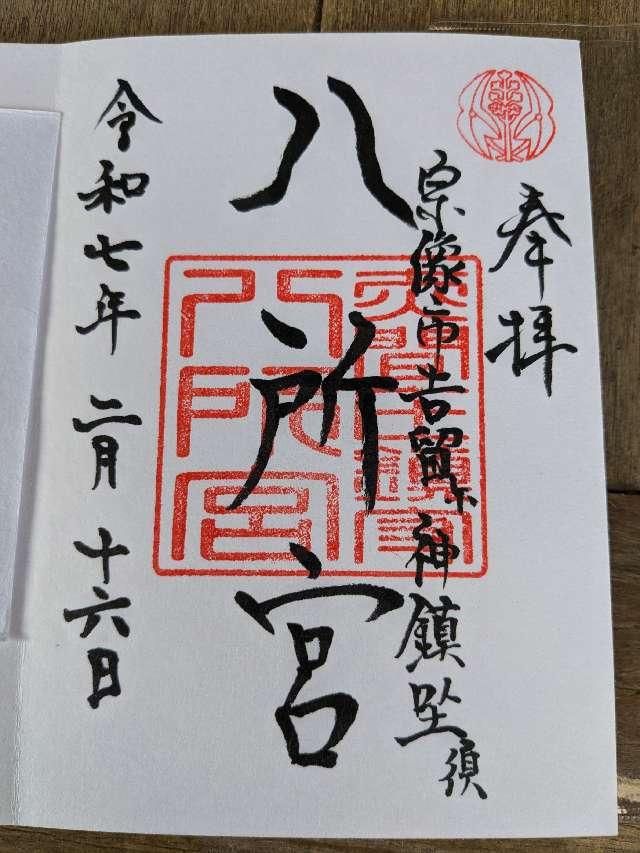 奉拝
宗像市吉留尓神鎮坐須
八所宮
八所宮
令和七年 二月 十六日